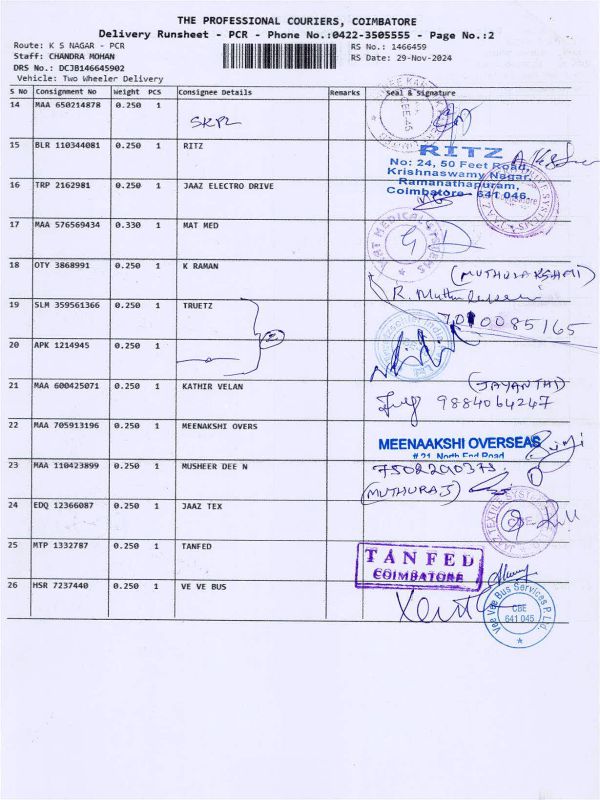 THE PROFESSIONAL COURIERS, COIMBATORE
Delivery Runsheet - PCR - Phone No.:0422-3505555 - Page No.:2
Route: K S NAGAR - PCR RS No.: 1466459
Staff: CHANDRA MOHAN RS Date: 29-Nov-2024
DRS No.: DCJB146645902
Vehicle: Two Wheeler Delivery
S No Consignment No Weight PCS Consignee Details Remarks Seal & Signature
14 MAA 650214878 0.250 1
SKPL
15 BLR 110344081 0.250 1 RITZ
RITZ
No: 24, 50 Feet Road,
Krishnaswamy Nagar,
Ramanathapuram,
Coimbatore - 641 046.
16 TRP 2162981 0.250 1 JAAZ ELECTRO DRIVE
17 MAA 576569434 0.330 1 MAT MED
18 OTY 3868991 0.250 1 K RAMAN
(MUTHULAKSHMI)
7010085165
19 SLM 359561366 0.250 1 TRUETZ
2
20 APK 1214945 0.250 1
21 MAA 600425071 0.250 1 KATHIR VELAN
(JAYANTHI)
9884064247
22 MAA 705913196 0.250 1 MEENAKSHI OVERS
MEENAAKSHI OVERSEAS
# 21, North End Road
23 MAA 110423899 0.250 1 MUSHEER DEE N
7502290375
(MUTHURAJ)
24 EDQ 12366087 0.250 1 JAAZ TEX
JAAZ TEXTILE SYSTEMS
25 MTP 1332787 0.250 1 TANFED
TANFED
COIMBATORE
26 HSR 7237440 0.250 1 VE VE BUS
Vee Vee Bus Services P. Ltd.
CBE
641 045